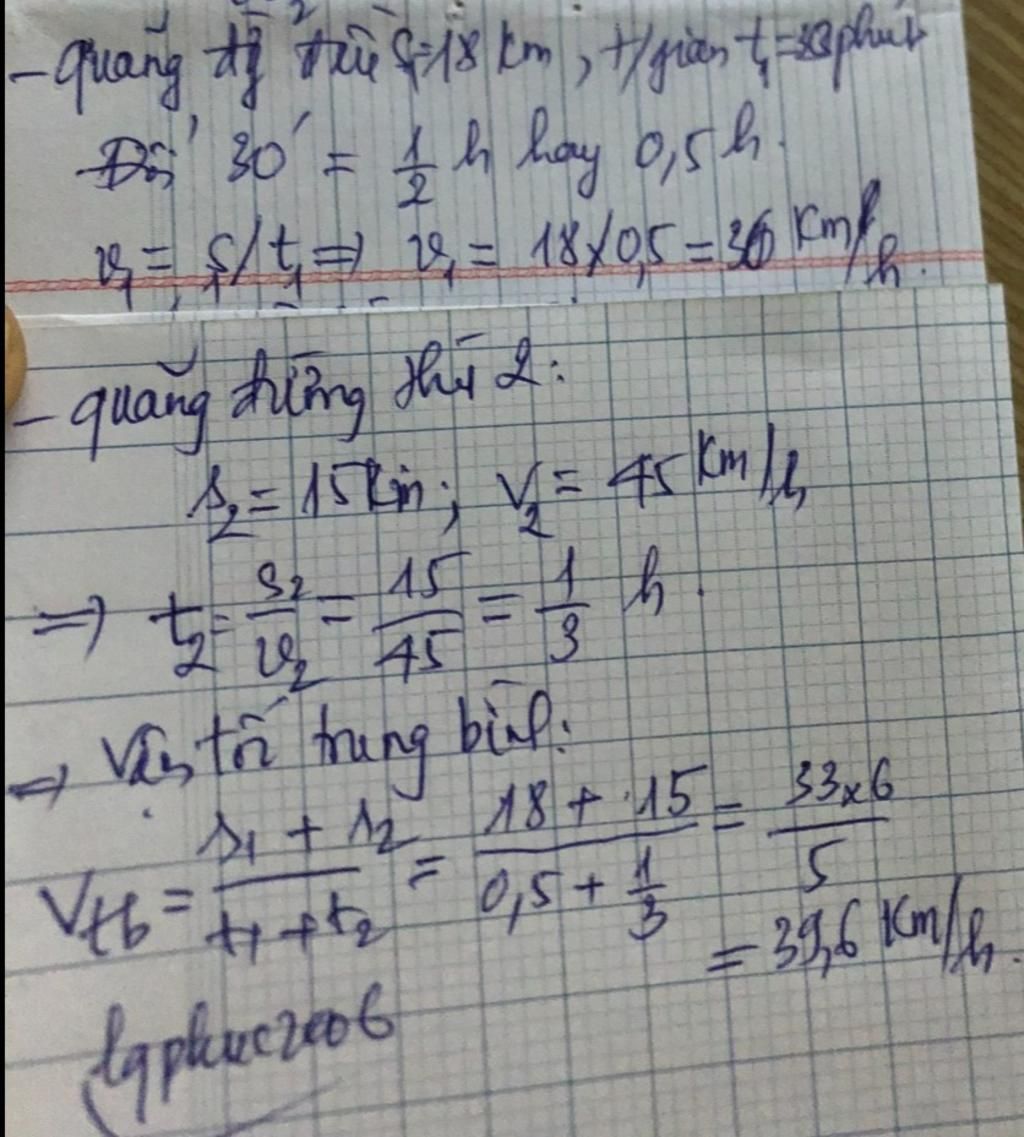 - quãng đg đầu S₁=18 km, t/gian t₁=30phút
Đổi 30' = 1/2 h hay 0,5 h.
v₁ = S₁/t₁ ⇒ v₁ = 18/0,5 = 36 Km/h.
- quãng đường thứ 2:
s₂ = 15 Km; v₂ = 45 Km/h
⇒ t₂ = s₂/v₂ = 15/45 = 1/3 h.
⇒ Vận tốc trung bình:
Vtb = (s₁ + s₂)/(t₁ + t₂) = (18 + 15)/(0,5 + 1/3) = (33x6)/5
= 39,6 Km/h.
lgphuc2006